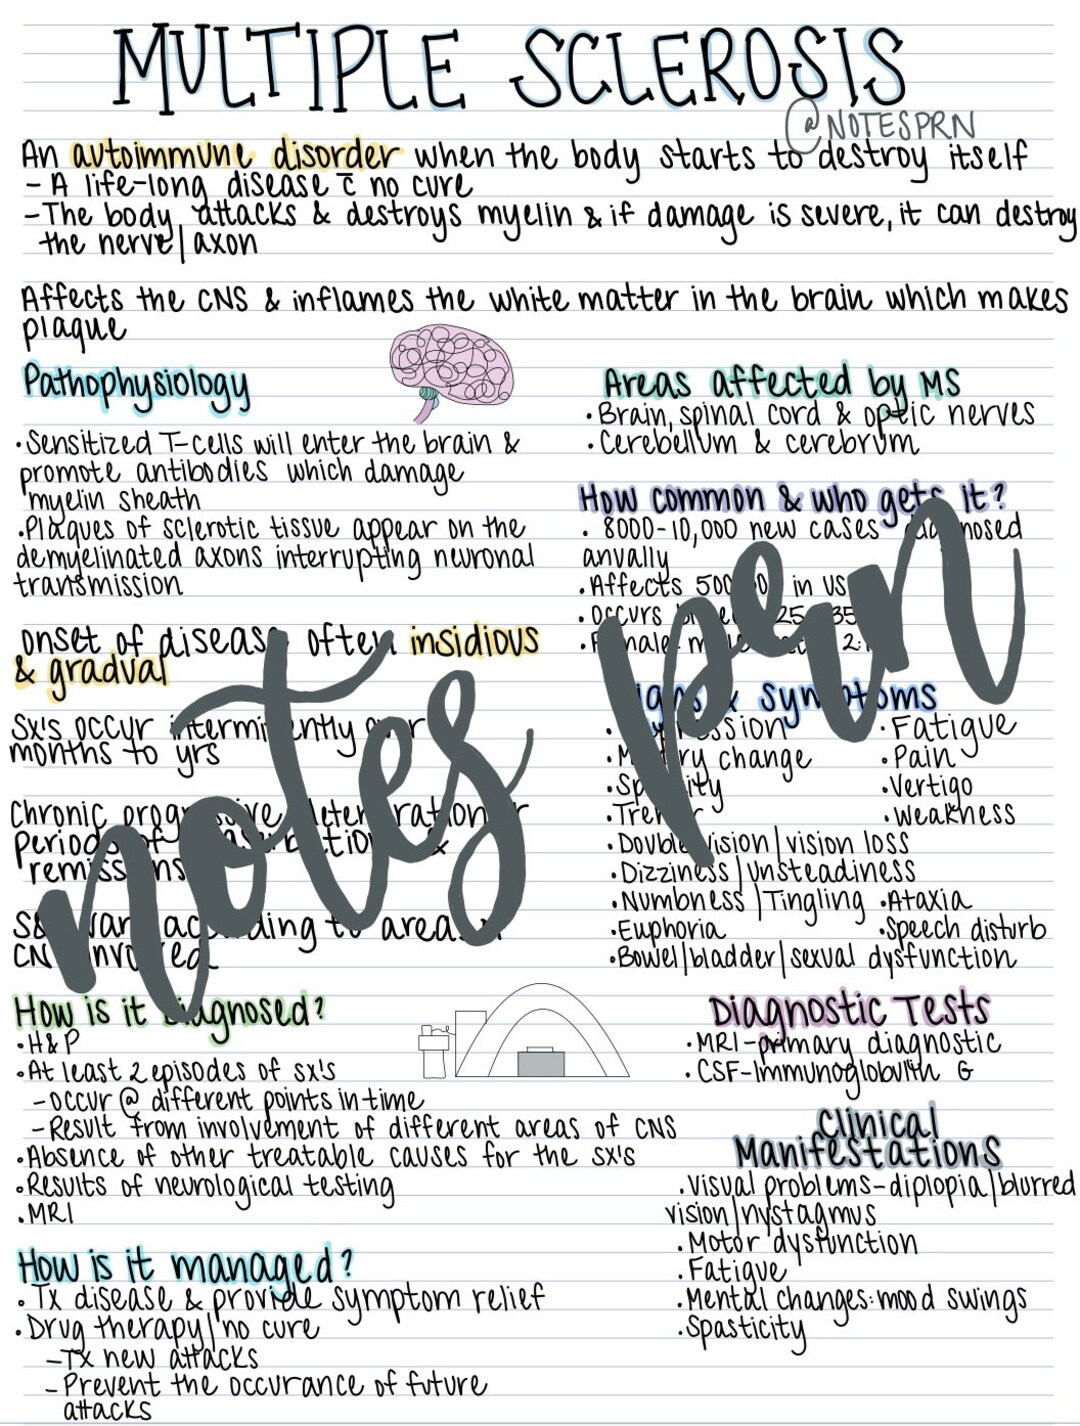 MULTIPLE SCLEROSIS
@NOTESPRN
An autoimmune disorder when the body starts to destroy itself
- A life-long disease c̄ no cure
- The body attacks & destroys myelin & if damage is severe, it can destroy
the nerve/axon
Affects the CNS & inflames the white matter in the brain which makes
plaque
Pathophysiology
• Sensitized T-cells will enter the brain &
promote antibodies which damage
myelin sheath
• Plaques of sclerotic tissue appear on the
demyelinated axons interrupting neuronal
transmission
onset of disease often insidious
& gradual
Sx's occur intermittently over
months to yrs
Chronic progressive deterioration
periods of &
remissions
according to areas
CNS involved
How is it diagnosed?
• H&P
• At least 2 episodes of sx's
- occur @ different points in time
- Result from involvement of different areas of CNS
• Absence of other treatable causes for the sx's
• Results of neurological testing
• MRI
How is it managed?
• Tx disease & provide symptom relief
• Drug therapy/no cure
- Tx new attacks
- Prevent the occurance of future
attacks
Areas affected by MS
• Brain, spinal cord & optic nerves
• Cerebellum & cerebrum
How common & who gets it?
• 8000-10,000 new cases diagnosed
anually
• Affects in US
• occurs
•
Signs & Symptoms
• Depression
• Memory change
• Spasticity
• Tremor
• Double vision/vision loss
• Dizziness/unsteadiness
• Numbness/Tingling
• Euphoria
• Bowel/bladder/sexual dysfunction
• Fatigue
• Pain
• Vertigo
• Weakness
• Ataxia
• Speech disturb
Diagnostic Tests
• MRI-primary diagnostic
• CSF-Immunoglobulin G
Clinical
Manifestations
• Visual problems-diplopia/blurred
vision/nystagmus
• Motor dysfunction
• Fatigue
• Mental changes: mood swings
• Spasticity
notes prn